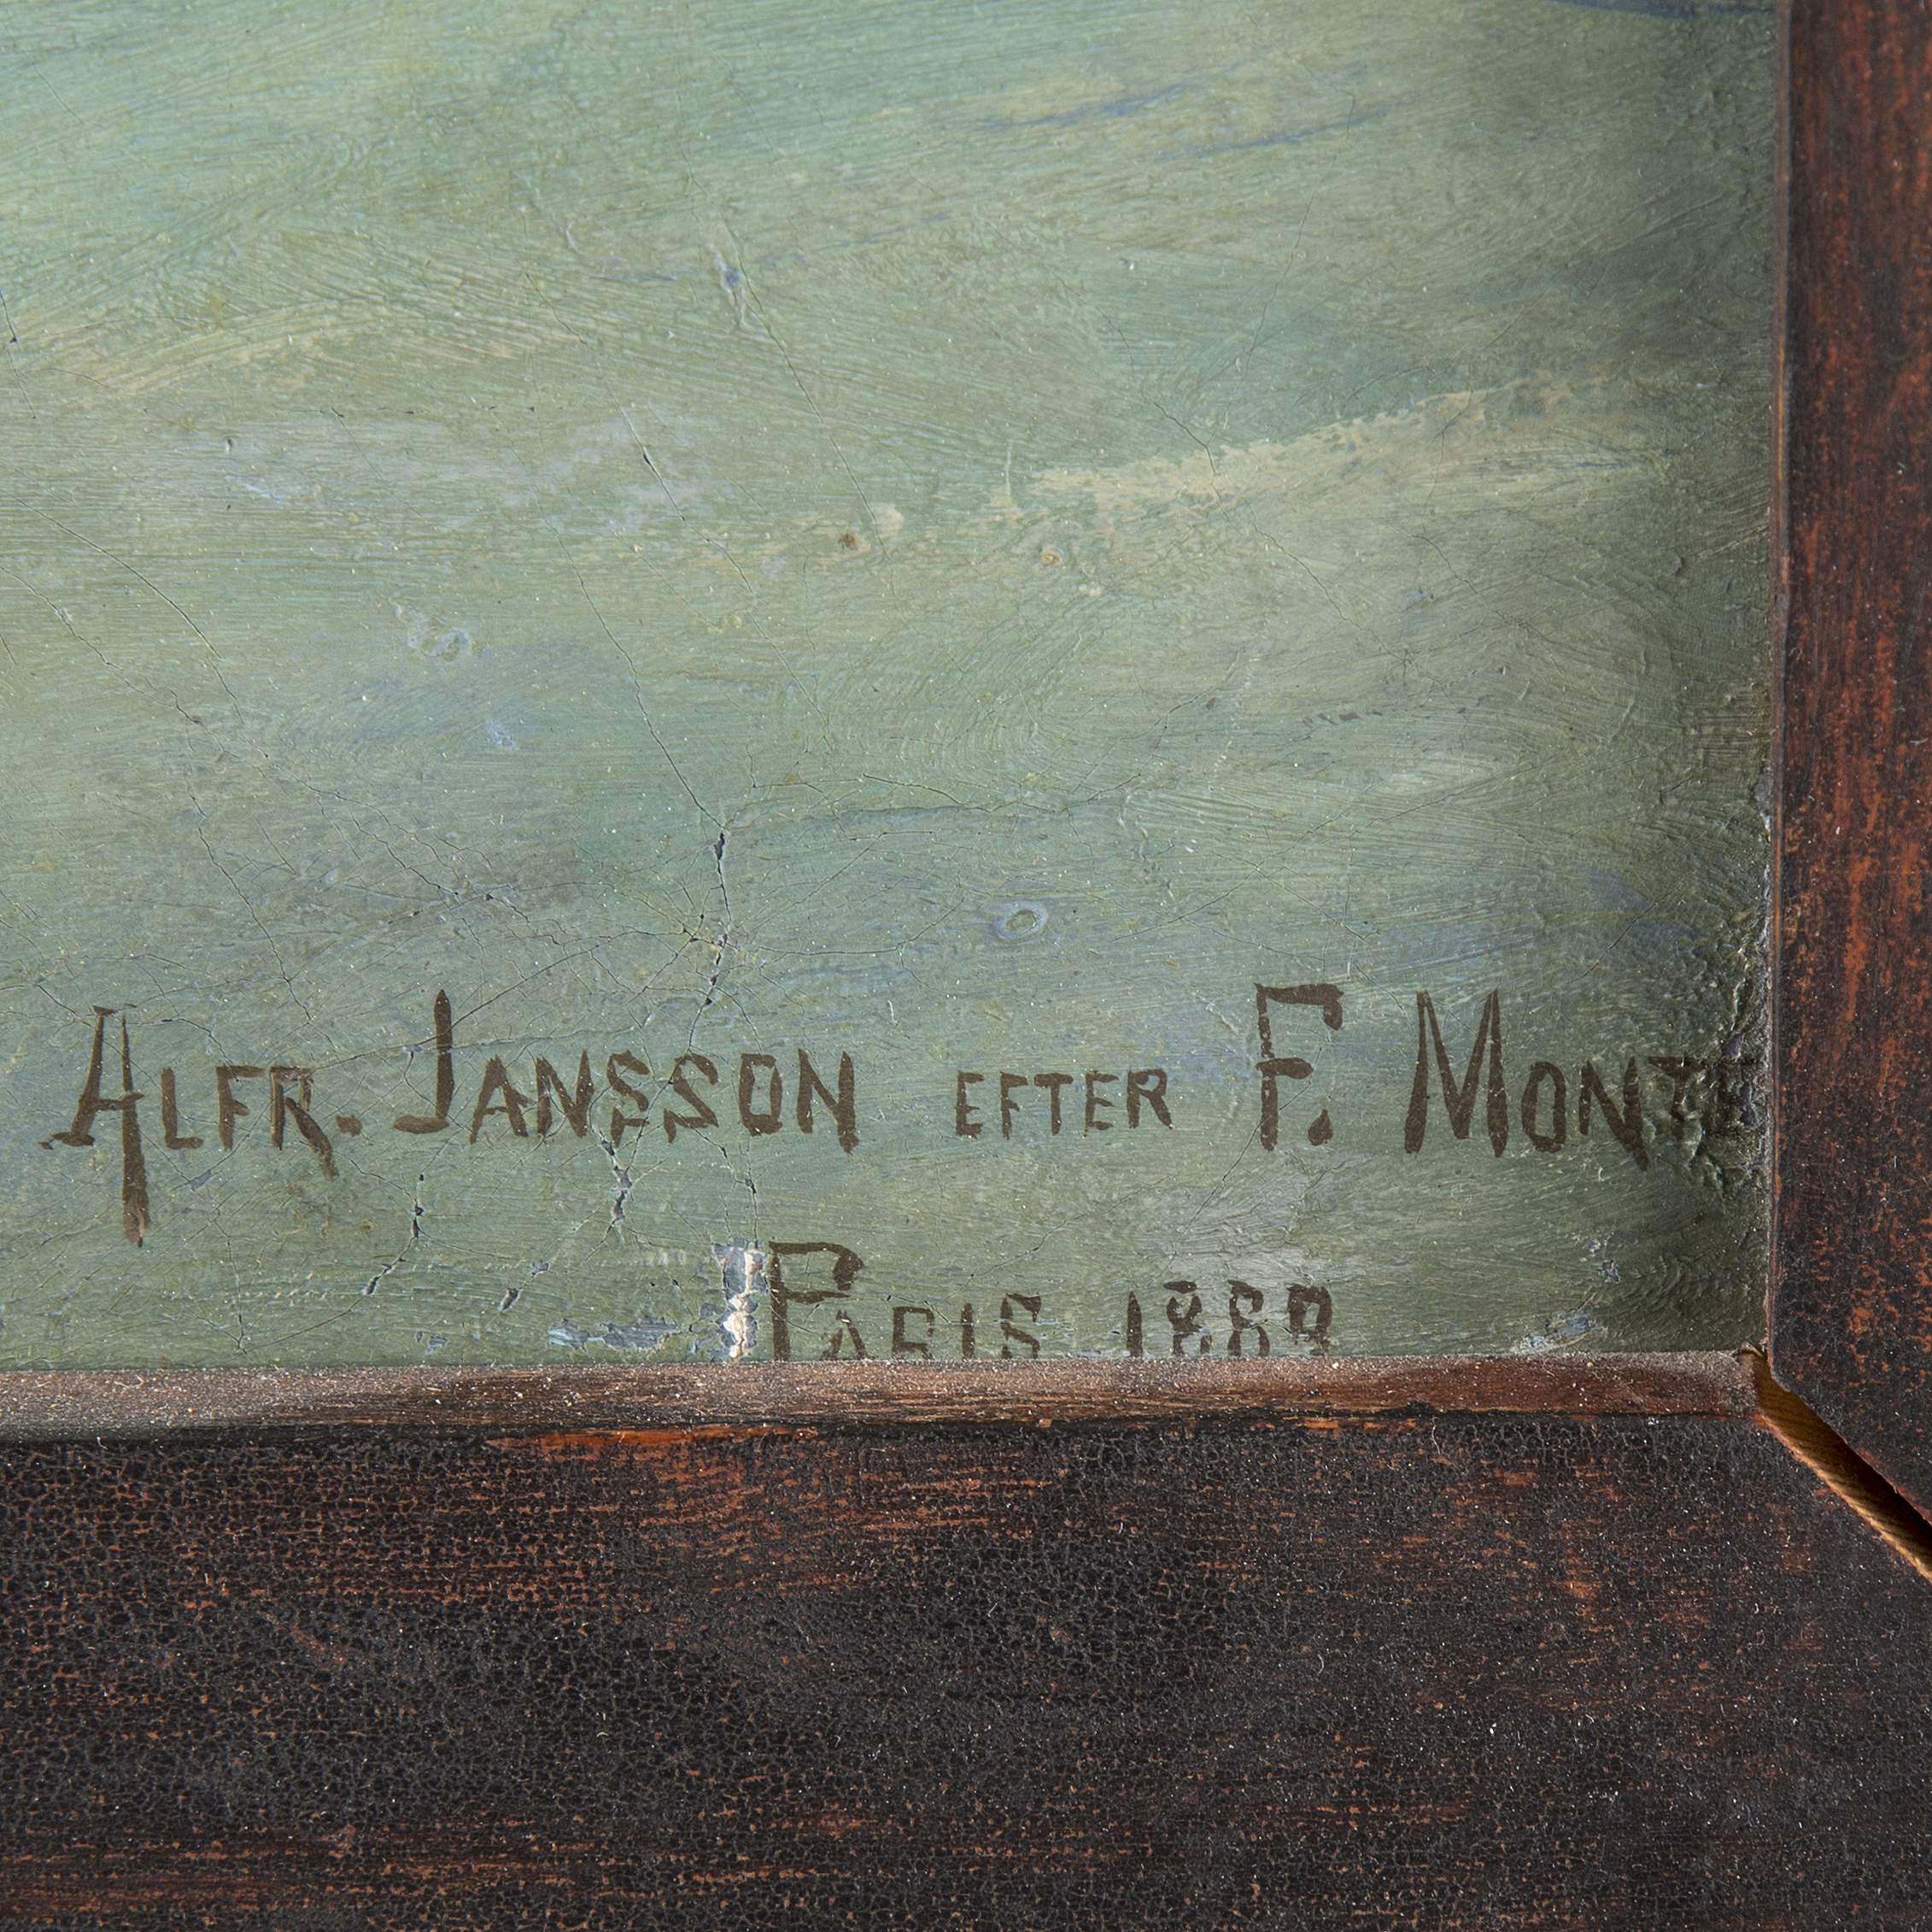 ALFR. JANSSON EFTER F. MONTE
PARIS 1889